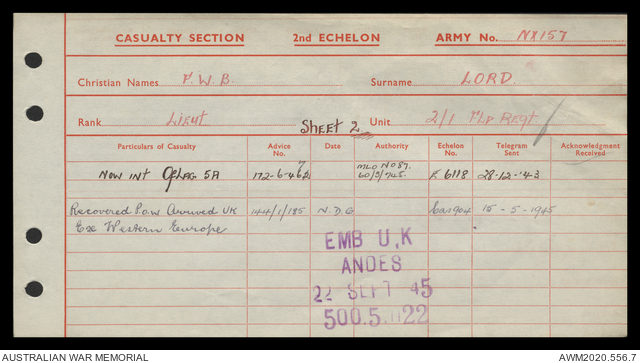 CASUALTY SECTION 2nd ECHELON ARMY No. NX157
Christian Names F. W. B. Surname LORD.
Rank Lieut SHEET 2 Unit 2/1 Regt
Particulars of Casualty Advice No. Date Authority Echelon No. Telegram Sent Acknowledgment Received
Now Int Oflag 5A 172-6-4 MLO No 87. 60/3/745. E 6118 28-12-'43
Recovered P.O.W Arrived UK 144/1/185 N.D.G Cas 15-5-1945
Exe Western Europe
EMB U.K
ANDES
22 SEPT 45
500.5. 22
AUSTRALIAN WAR MEMORIAL AWM2020.556.7